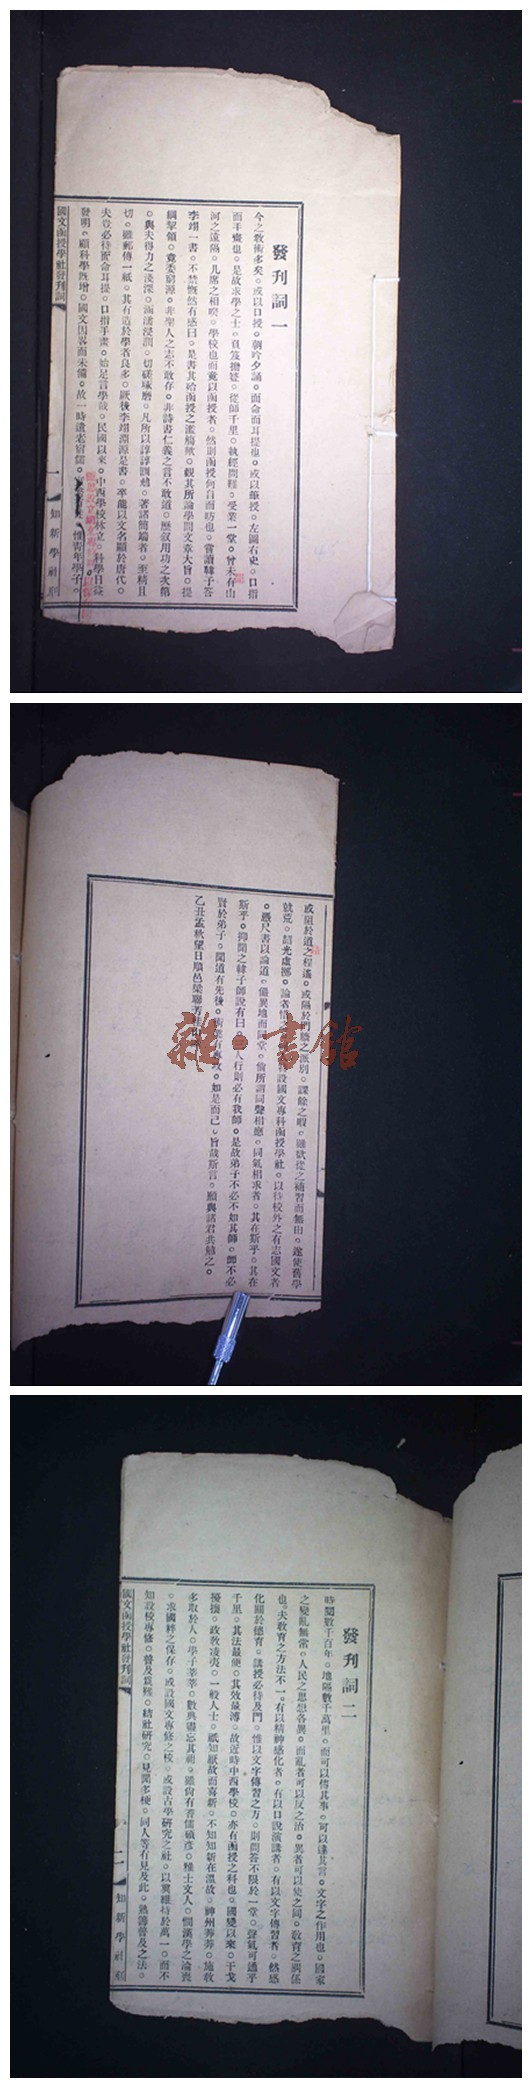 發刊詞一
今之教術多矣。或以口授。朝吟夕誦。面命而耳提也。或以筆授。左圖右史。口指
而手畫也。是故求學之士。負笈擔簦。從師千里。執經問難。受業一堂。曾未有山
河之遠隔。几席之相暌。學校也而竟以函授者。然則函授何自而昉也。嘗讀韓子答
李翊一書。不禁慨然有感曰。是書其殆函授之濫觴歟。觀其所論學問文章大旨。提
綱挈領。竟委窮源。非聖人之志不敢存。非詩書仁義之言不敢道。歷叙用功之次第
。與夫得力之淺深。涵濡浸潤。切磋琢磨。凡所以諄諄訓勉。著諸簡端者。至精且
切。雖郵傳一紙。其有造於學者良多。厥後李翊淵源是書。卒能以文名顯於唐代。
夫豈必待面命耳提。口指手畫。始足言學哉。民國以來。中西學校林立。科學日益
發明。顧科學既增。國文因畧而未備。故一時遺老宿儒。惟青年學子。
國文函授學社發刊詞
一
知新學社刊
或阻於道之程遙。或隔於門牆之派別。課餘之暇。雖欲從之補習而無由。遂使舊學
就荒。韶光虛擲。論者惜 設國文專科函授學社。以待校外之有志國文者
。憑尺書以論道。儼異地而同堂。倘所謂同聲相應。同氣相求者。其在斯乎。其在
斯乎。抑聞之韓子師說有曰。三人行則必有我師。是故弟子不必不如其師。師不必
賢於弟子。聞道有先後。術業有專攻。如是而已。旨哉斯言。願與諸君共勉之。
乙丑孟秋望日順邑梁聯芳
雜·書館
發刊詞二
時閱數千百年。地隔數千萬里。而可以傳其事。可以達其言。文字之作用也。國家
之變亂無常。人民之思想各異。而亂者可以反之治。異者可以使之同。教育之關係
也。夫教育之方法不一。有以精神感化者。有以口說演講者。有以文字傳習者。然感
化關於德育。講授必待及門。惟以文字傳習之方。則問答不限於一堂。聲氣可通乎
千里。其法最便。其效最溥。故近時中西學校。亦有函授之科也。國變以來。干戈
擾攘。政教凌夷。一般人士。祇知厭故而喜新。不知知新在溫故。神州莽莽。施教
多取於人。學子莘莘。數典盡忘其祖。雖尚有耆儒碩彥。雅士文人。憫漢學之淪喪
。求國粹之保存。或設國文專修之校。或設古學研究之社。以冀維持於萬一。而不
知設校專修。普及爲難。結社研究。見聞多梗。同人等有見及此。熟籌普及之法。
國文函授學社發刊詞
二
知新學社刊